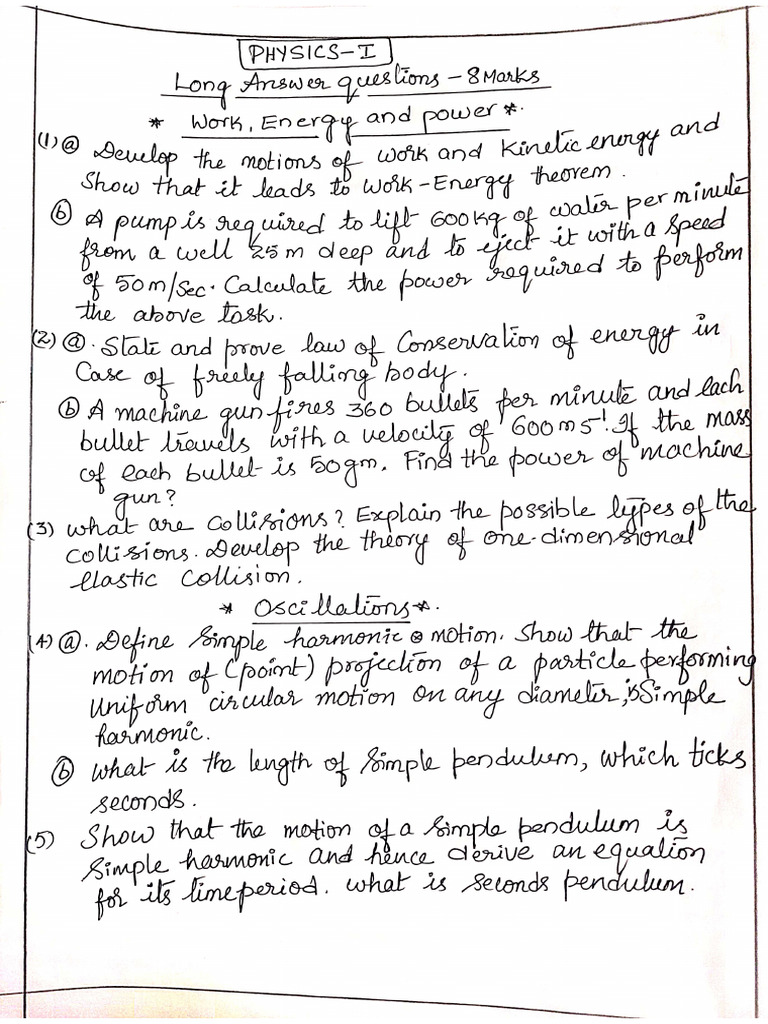 PHYSICS-I
Long Answer questions - 8 Marks
* Work, Energy and power *.
(1) ⓐ Develop the notions of work and Kinetic energy and
Show that it leads to work-Energy theorem.
ⓑ A pump is required to lift 600kg of water per minute
from a well 25m deep and to eject it with a speed
of 50m/sec. Calculate the power required to perform
the above task.
(2) ⓐ. State and prove law of Conservation of energy in
Case of freely falling body.
ⓑ A machine gun fires 360 bullets per minute and each
bullet travels with a velocity of 600ms⁻¹. If the mass
of each bullet is 50gm. Find the power of machine
gun?
(3) what are collisions? Explain the possible types of the
collisions. Develop the theory of one-dimensional
elastic collision.
* Oscillations *.
(4) ⓐ. Define Simple harmonic motion. Show that the
motion of (point) projection of a particle performing
Uniform circular motion on any diameter, is Simple
harmonic.
ⓑ what is the length of Simple pendulum, which ticks
seconds.
(5) Show that the motion of a Simple pendulum is
Simple harmonic and hence derive an equation
for its timeperiod. what is seconds pendulum.